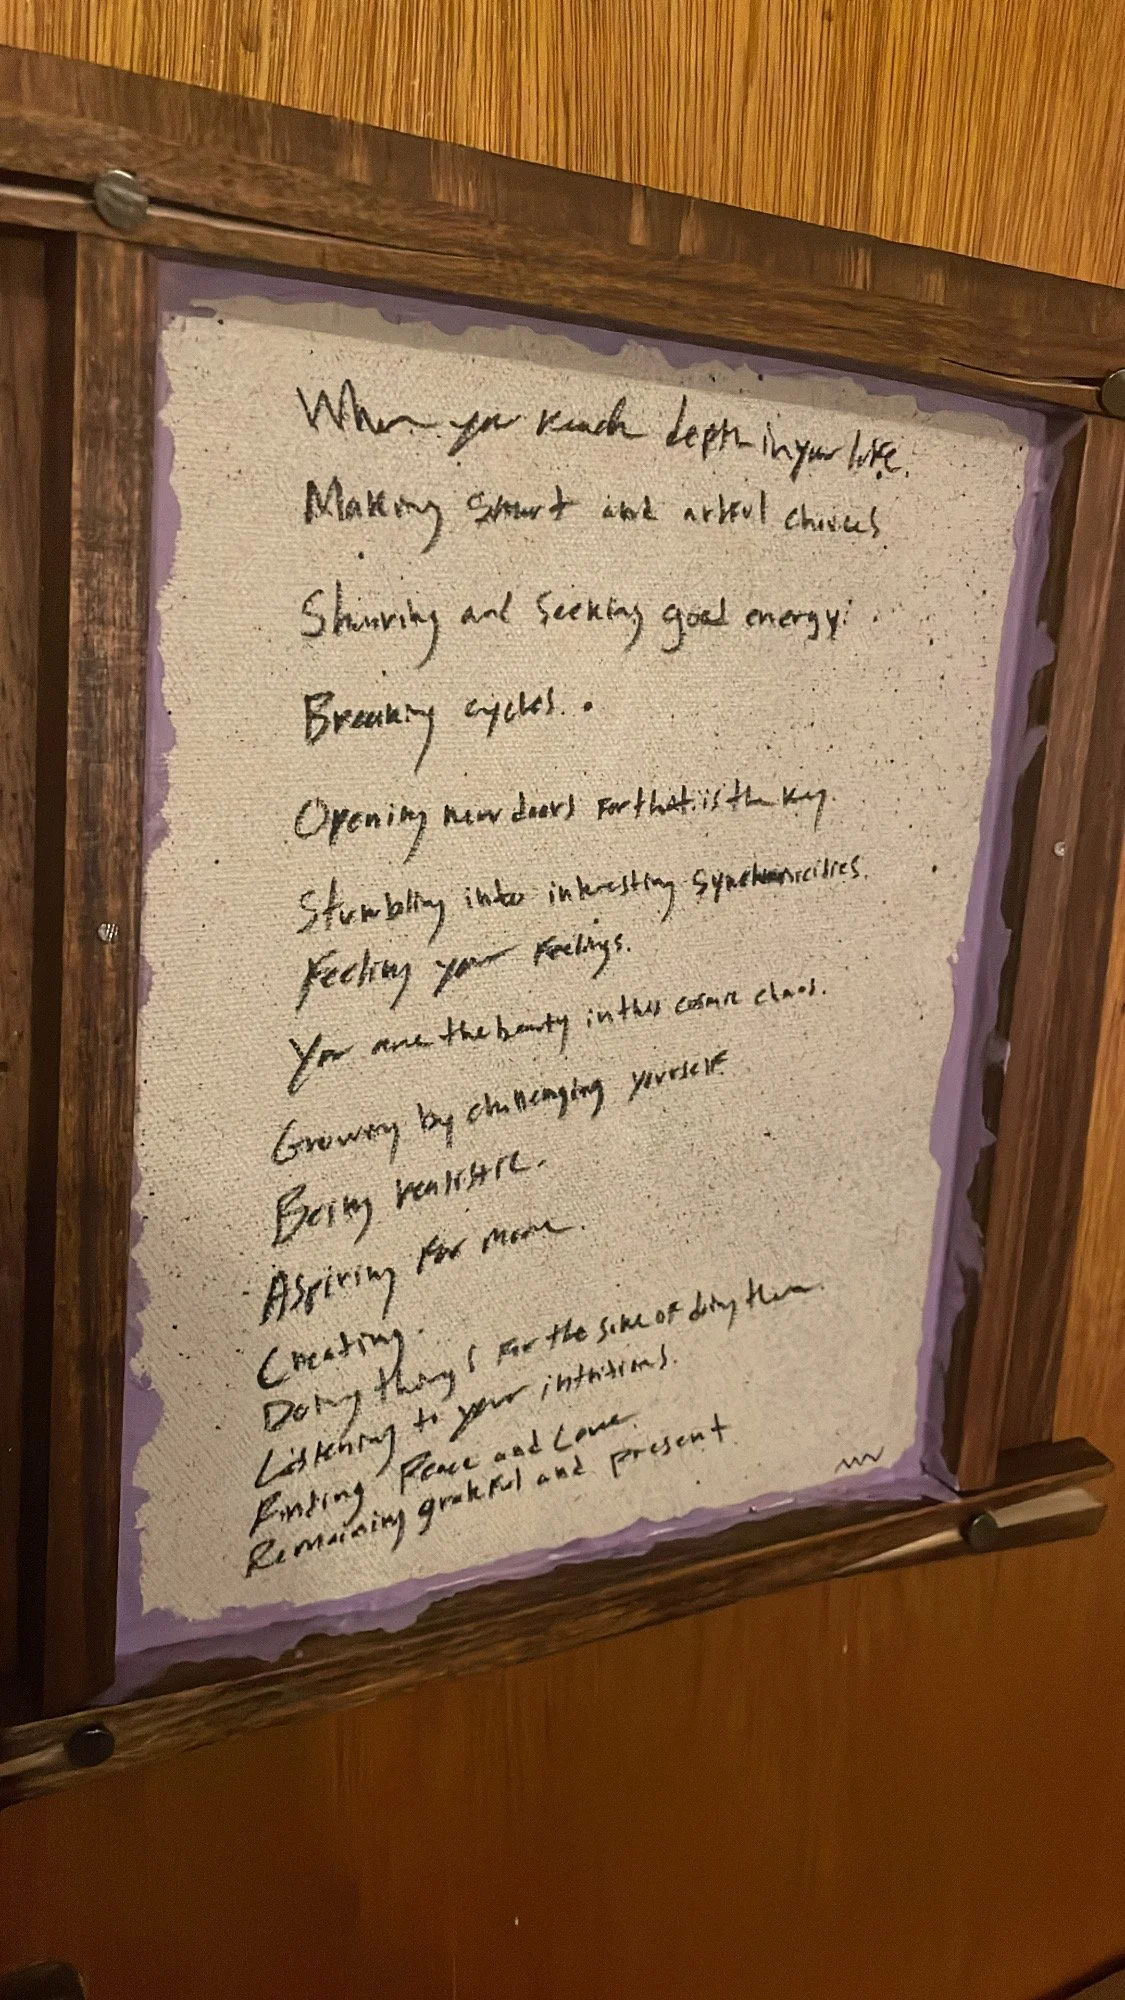 When you reach depth in your life.
Making smart and artful choices
Sharing and Seeking good energy.
Breaking cycles.
Opening new doors for that is the key.
Stumbling into interesting synchronicities.
Feeling your feelings.
You are the beauty in this cosmic chaos.
Growing by challenging yourself
Being realistic.
Aspiring for more.
Creating.
Doing things for the sake of doing them.
Listening to your intuitions.
Finding Peace and Love.
Remaining grateful and present